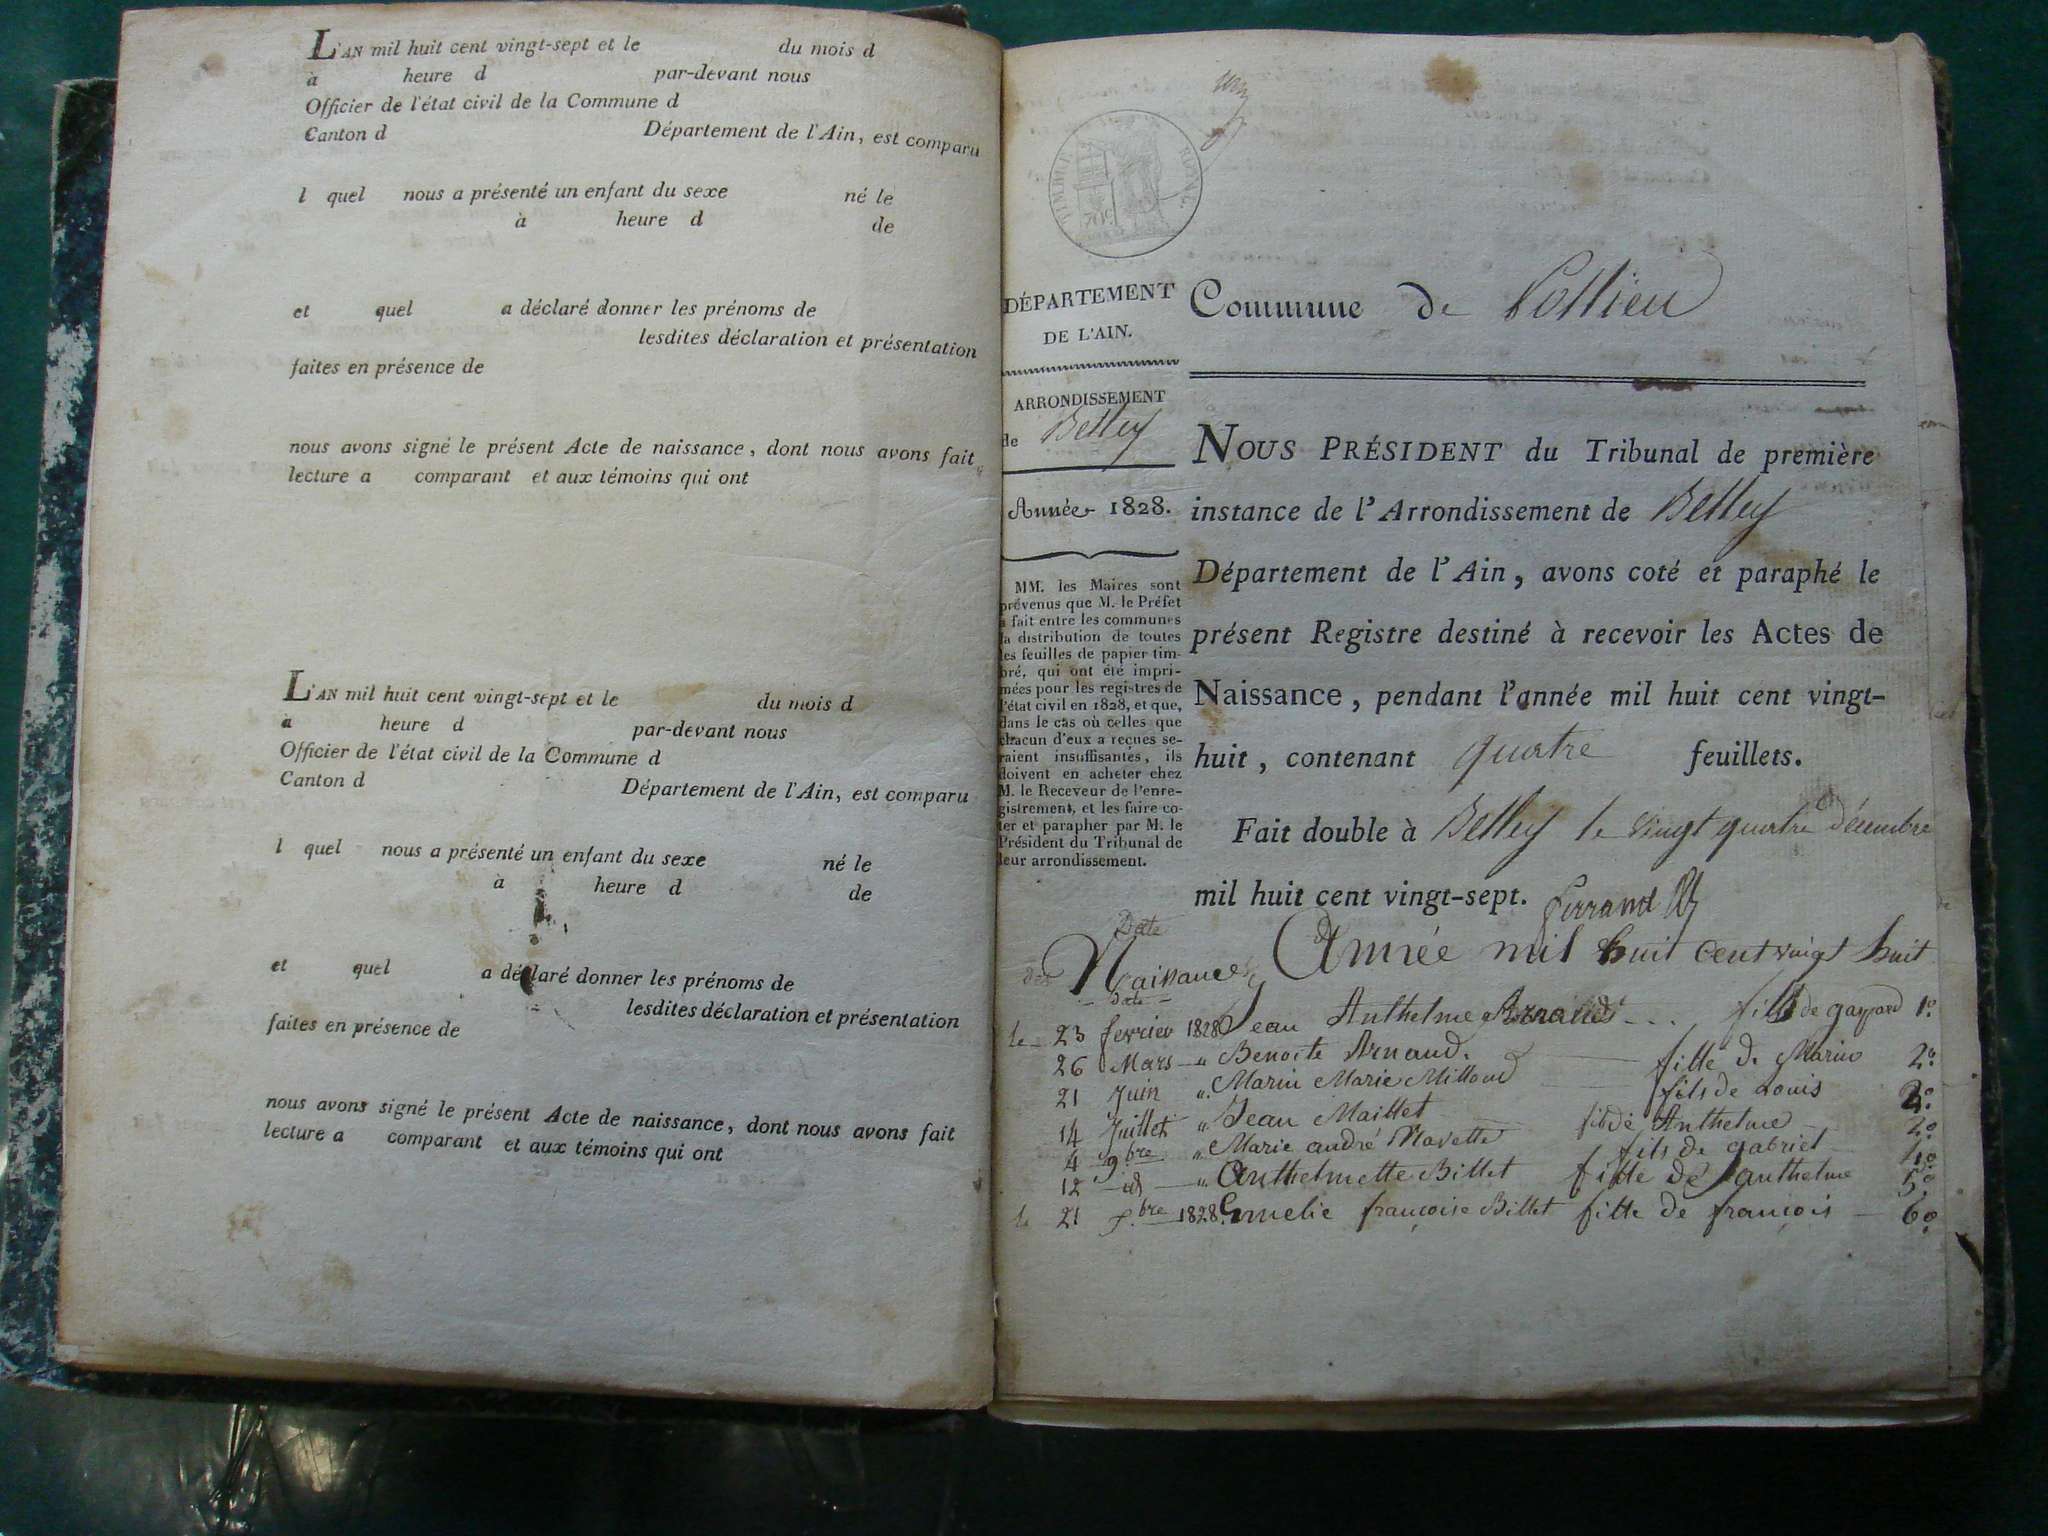 L'AN mil huit cent vingt-sept et le du mois d
à heure d par-devant nous
Officier de l'état civil de la Commune d
Canton d Département de l'Ain, est comparu
l quel nous a présenté un enfant du sexe né le
à heure d de
et quel a déclaré donner les prénoms de
lesdites déclaration et présentation
faites en présence de
nous avons signé le présent Acte de naissance, dont nous avons fait
lecture a comparant et aux témoins qui ont
L'AN mil huit cent vingt-sept et le du mois d
à heure d par-devant nous
Officier de l'état civil de la Commune d
Canton d Département de l'Ain, est comparu
l quel nous a présenté un enfant du sexe né le
à heure d de
et quel a déclaré donner les prénoms de
lesdites déclaration et présentation
faites en présence de
nous avons signé le présent Acte de naissance, dont nous avons fait
lecture a comparant et aux témoins qui ont
TIMBRE ROYAL
DÉPARTEMENT
DE L'AIN.
ARRONDISSEMENT
de Belley
Année 1828.
MM. les Maires sont
prévenus que M. le Préfet
a fait entre les communes
la distribution de toutes
les feuilles de papier tim-
bré, qui ont été impri-
mées pour les registres de
l'état civil en 1828, et que,
dans le cas où celles que
chacun d'eux a reçues se-
raient insuffisantes, ils
doivent en acheter chez
M. le Receveur de l'enre-
gistrement, et les faire co-
ter et parapher par M. le
Président du Tribunal de
leur arrondissement.
Commune de Pollieu
NOUS PRÉSIDENT du Tribunal de première
instance de l'Arrondissement de Belley
Département de l'Ain, avons coté et paraphé le
présent Registre destiné à recevoir les Actes de
Naissance, pendant l'année mil huit cent vingt-
huit, contenant quatre feuillets.
Fait double à Belley le vingt quatre décembre
mil huit cent vingt-sept. Ferrand
Date
des Naissances Année mil huit cent vingt huit
Date
le 23 fevrier 1828 Jean Anthelme Arnaud fils de gaspard 1º
26 Mars " Benoite Arnaud. fille de Marin 2º
21 Juin " Marin Marie Milloud fils de Louis
14 Juillet " Jean Maillet fils de Anthelme
4 9.bre " Marie andré Navette fils de gabriel 4º
12 id " Anthelmette Billet fille de anthelme 5º
le 21 bre 1828 Emelie françoise Billet fille de françois 6º